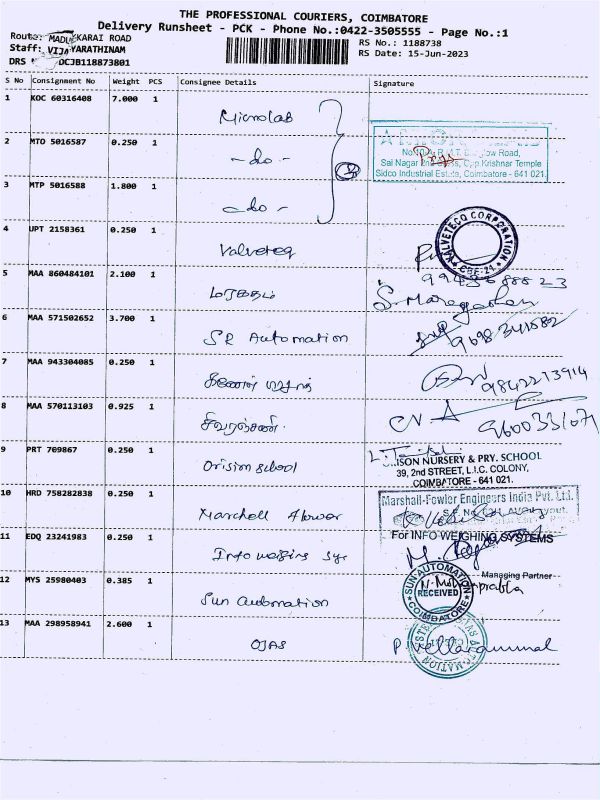 THE PROFESSIONAL COURIERS, COIMBATORE
Delivery Runsheet - PCK - Phone No.:0422-3505555 - Page No.:1
Route: MADUKKARAI ROAD
RS No.: 1188738
Staff: VIJAYARATHINAM
RS Date: 15-Jun-2023
DRS OCJB118873801
S No Consignment No Weight PCS Consignee Details Signature
1 KOC 60316408 7.000 1 Microlab
2 MTO 5016587 0.250 1 - do -
Sai Nagar Krishnar Temple
Sidco Industrial Estate, Coimbatore - 641 021.
3 MTP 5016588 1.800 1 - do -
4 UPT 2158361 0.250 1 Valveteq
VALVETECQ CORPORATION
CBE-21
5 MAA 860484101 2.100 1 மரகதம்
6 MAA 571502652 3.700 1 SR Automation 9698341882
7 MAA 943304085 0.250 1 9842213914
8 MAA 570113103 0.925 1 சிவரஞ்சனி 9600331071
9 PRT 709867 0.250 1 Orision school
NURSERY & PRY. SCHOOL
39, 2nd STREET, L.I.C. COLONY,
COIMBATORE - 641 021.
10 HRD 758282838 0.250 1 Marchell flower
Marshall-Fowler Engineers India Pvt. Ltd.
11 EDQ 23241983 0.250 1 Info weighing Sys
For INFO WEIGHING SYSTEMS
Managing Partner
12 MYS 25980403 0.385 1 Sun automation
SUN AUTOMATION
RECEIVED
COIMBATORE
13 MAA 298958941 2.600 1 OJAS P. Vellaiammal